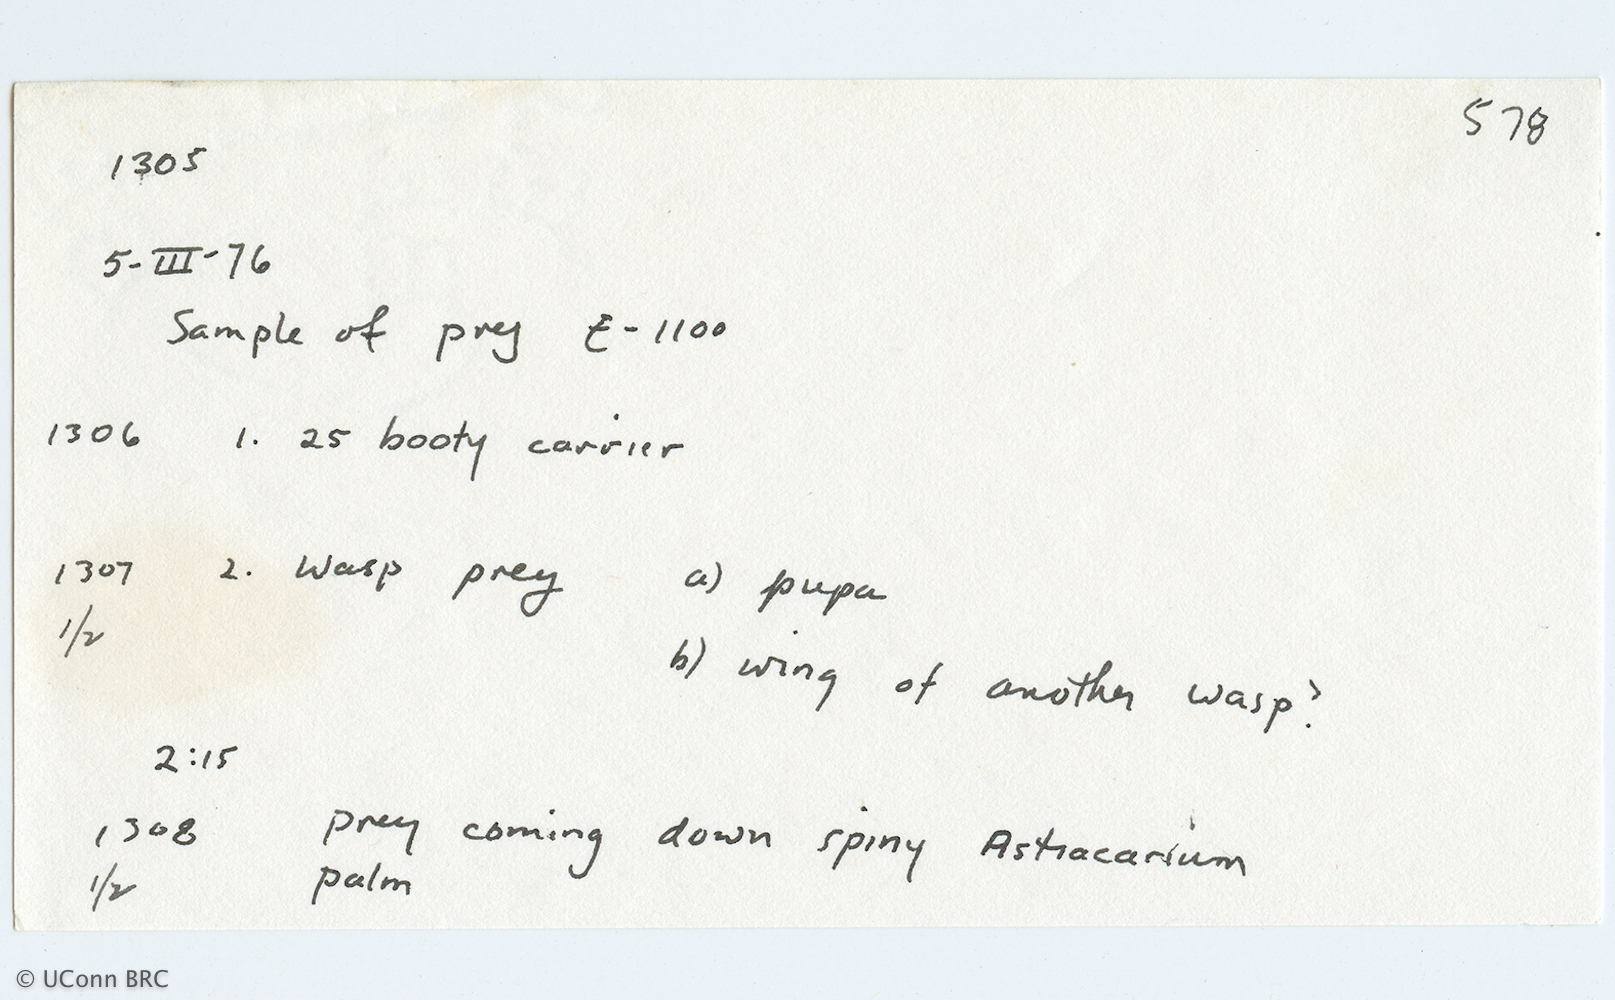 578
1305
5-III-76
Sample of prey E-1100
1306 1. 25 booty carrier
1307 2. Wasp prey a) pupa
1/2
b) wing of another wasp?
2:15
1308 prey coming down spiny Astracarium
1/2 palm
© UConn BRC